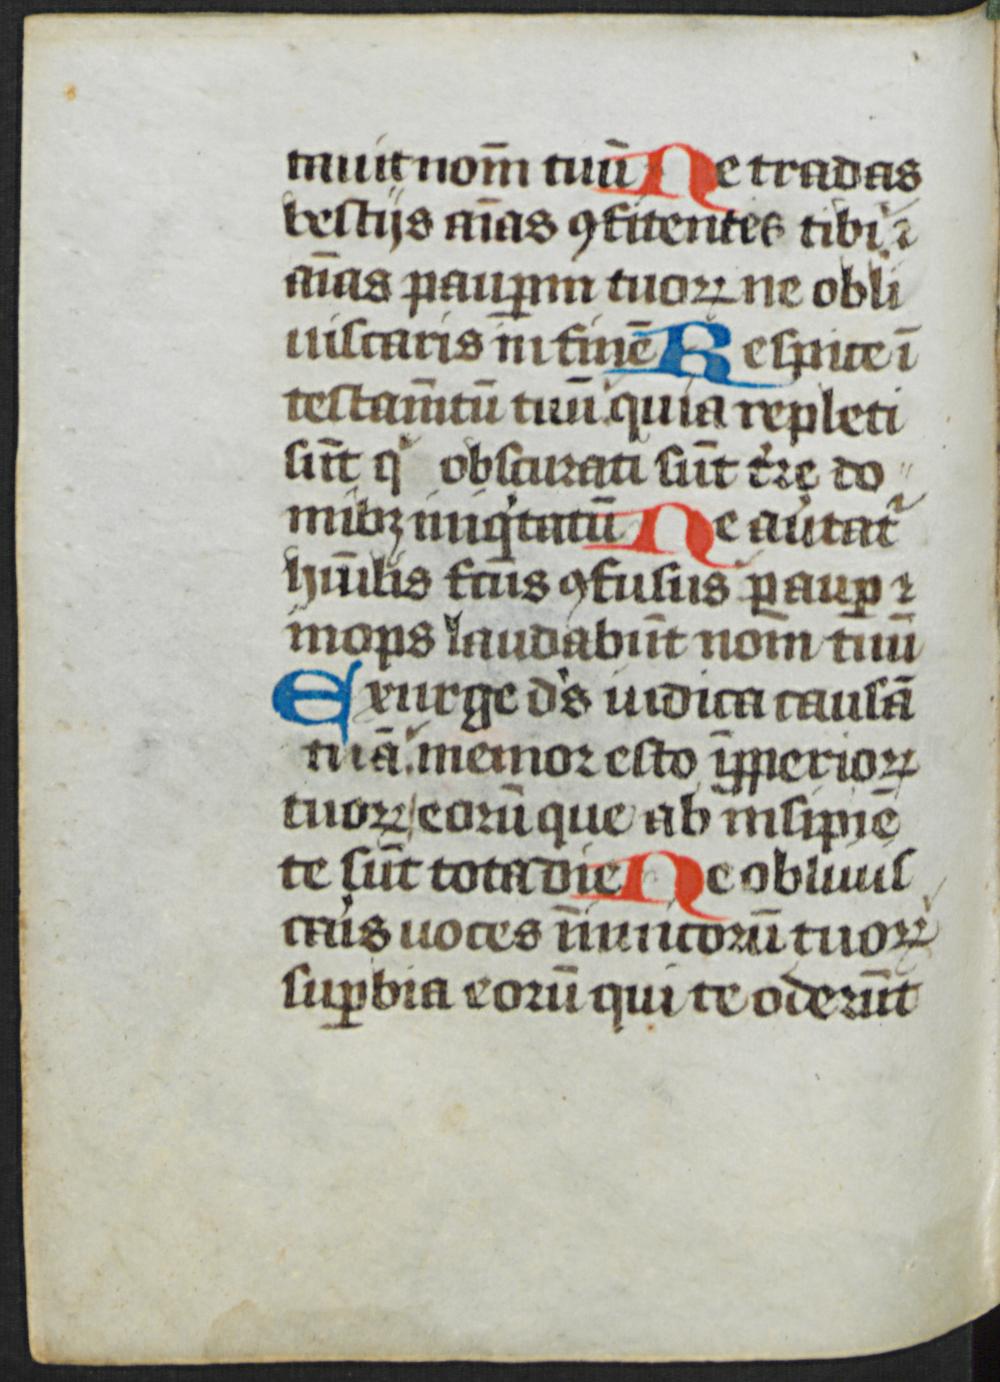 tauit nom̄ tuū Ne tradas
bestijs aīas ꝯfitentes tibi ⁊
aīas paup̲m tuoꝝ ne obli
uiscaris in finē Respice ī
testam̄tū tuū quia repleti
sūt qͥ obscurati sūt t̄re do
mibꝫ iniqͥtatū Ne au̾tat᷑
hūilis fc̄us ꝯfusus paup̲ ⁊
inops laudabūt nom̄ tuū
Exurge ds̄ iudica causā
tuā memor esto īpꝓperioꝝ
tuoꝝ eorū que ab insipiē
te sūt tota die Ne obliuis
car̾is uoces īimicorū tuoꝝ
sup̲bia eorū qui te oderūt